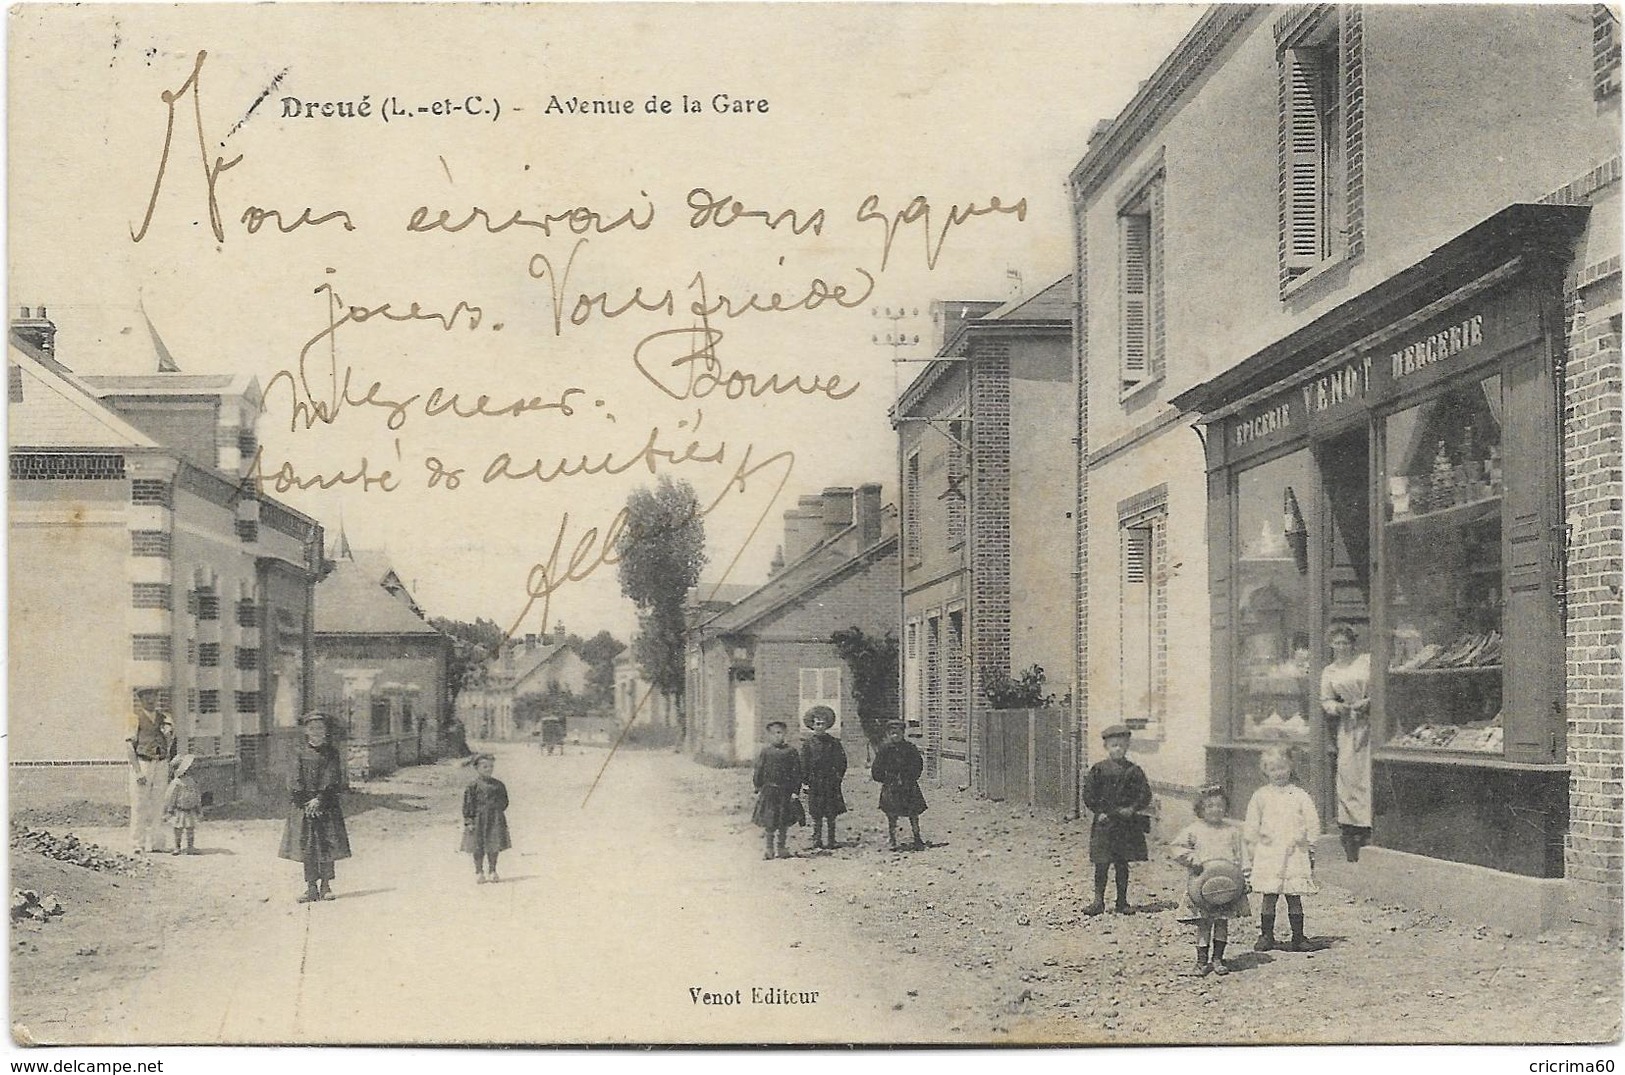 Droué (L.-et-C.) - Avenue de la Gare
Vous écrirai dans qques
jours. Vous prie de
m'excuser. Bonne
santé & amitiés
Albert
EPICERIE VENOT MERCERIE
Venot Editeur
www.delcampe.net
cricrima60